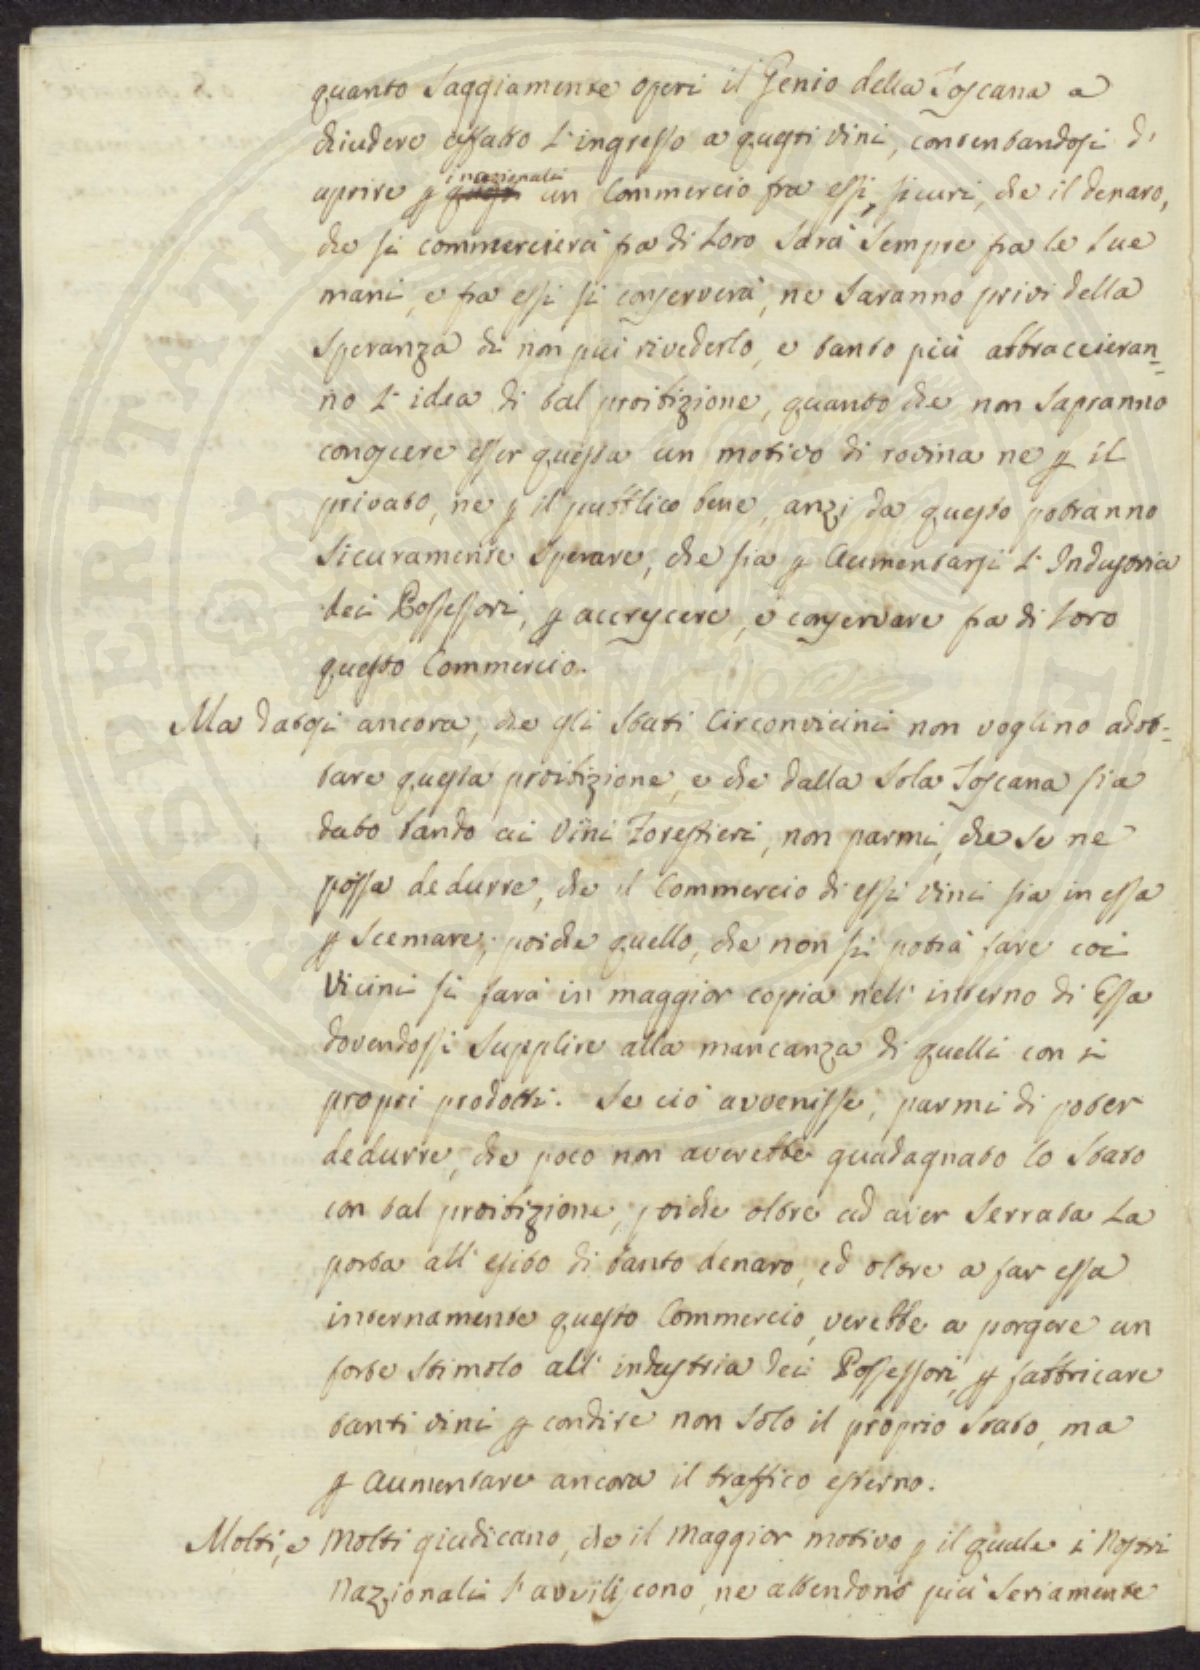 quanto Saggiamente operi il Genio della Toscana a
chiudere affatto l'ingresso a questi vini, contentandosi d'
aprire p i nazionali un Commercio fra essi, sicuri, che il denaro,
che si commercierà fra di loro Sarà Sempre fra le Sue
mani, e fra essi si conserverà, ne Saranno privi della
Speranza di non più rivederlo, e tanto più abbraccieran=
no l'idea di tal proibizione, quanto che non Sapranno
conoscere esser questa un motivo di rovina ne p il
privato, ne p il pubblico bene, anzi da questo potranno
Sicuramente Sperare, che sia p Aumentarsi l'Industria
dei Possessori, p accrescere, e conservare fra di loro
questo Commercio.
Ma datosi ancora, che gli Stati Circonvicini non voglino adot=
tare questa proibizione, e che dalla Sola Toscana sia
dato bando ai Vini Forestieri, non parmi, che Se ne
possa dedurre, che il Commercio di essi vini sia in essa
p Scemare, poiche quello, che non si potrà fare coi
Vicini si farà in maggior copia nell'interno di Essa
dovendosi Supplire alla mancanza di quelli con i
propri prodotti. Se ciò avvenisse, parmi di poter
dedurre, che poco non averebbe guadagnato lo Stato
con tal proibizione, poiche oltre ad aver Serrata la
porta all'esito di tanto denaro, ed oltre a far essa
internamente questo Commercio, verebbe a porgere un
forte Stimolo all'industria dei Possessori, p fabbricare
tanti vini p condire non Solo il proprio Stato, ma
p Aumentare ancora il traffico esterno.
Molti, e Molti giudicano, che il Maggior motivo p il quale i Nostri
Nazionali s'avviliscono, ne attendono più Seriamente